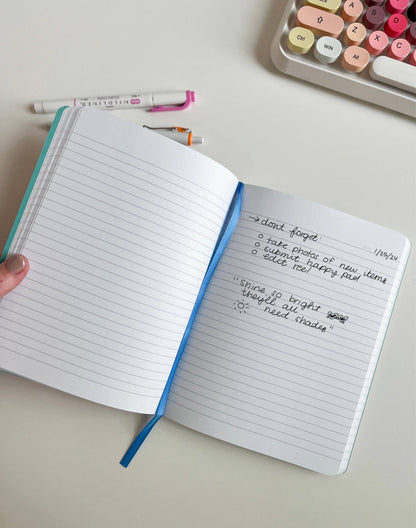 A S D
Z X C
Ctrl WIN Alt
MILDLINER
→ don't forget
o take photos of new items
o submit happy pad
o edit reel
"shine so bright
they'll all
need shades"